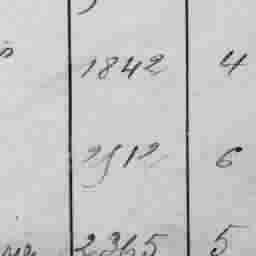 1842 4
2512 6
2365 5